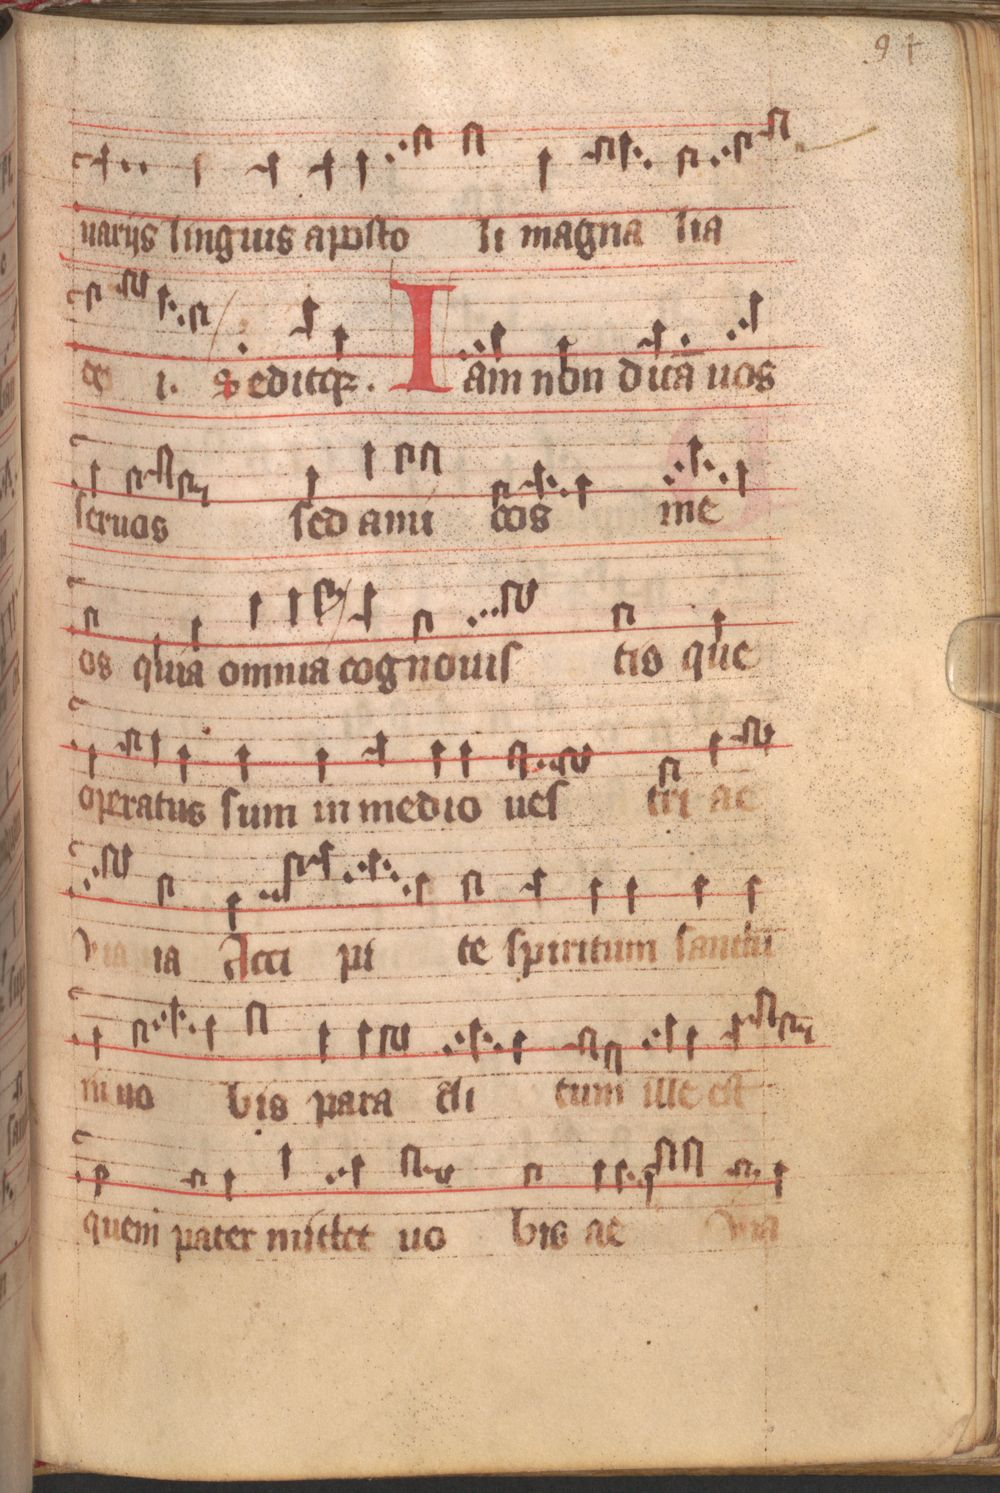 94
uarijs linguis aposto li magna lia
de i. Seditqꝫ. Iam non dicā uos
seruos sed ami cos me
os quia omnia cognouis tis que
operatus sum in medio ues tri ae
via ia Acci pi te spiritum sanctū
in uo bis para cli tum ille est
quem pater mittet uo bis ae via